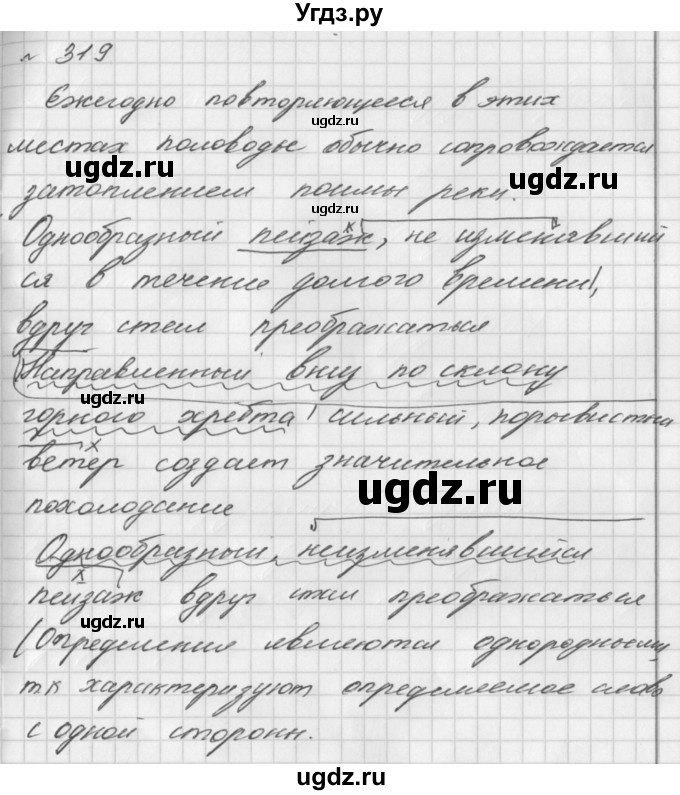 Угдз.ru
№ 319
Ежегодно повторяющееся в этих
местах половодье обычно сопровождается
ugdz.ru ugdz.ru
затоплением поймы реки.
ugdz.ru
Однообразный пейзаж, не изменявший
ся в течение долгого времени,
вдруг стал преображаться
Направленный вниз по склону
ugdz.ru
горного хребта сильный, порывистый
ветер создает значительное
ugdz.ru
похолодание
Однообразный, неизменявшийся
пейзаж вдруг стал преображаться
ugdz.ru
(Определения являются однородными,
тк характеризуют определяемое слово
с одной сторонн.
ugdz.ru
ugdz.ru